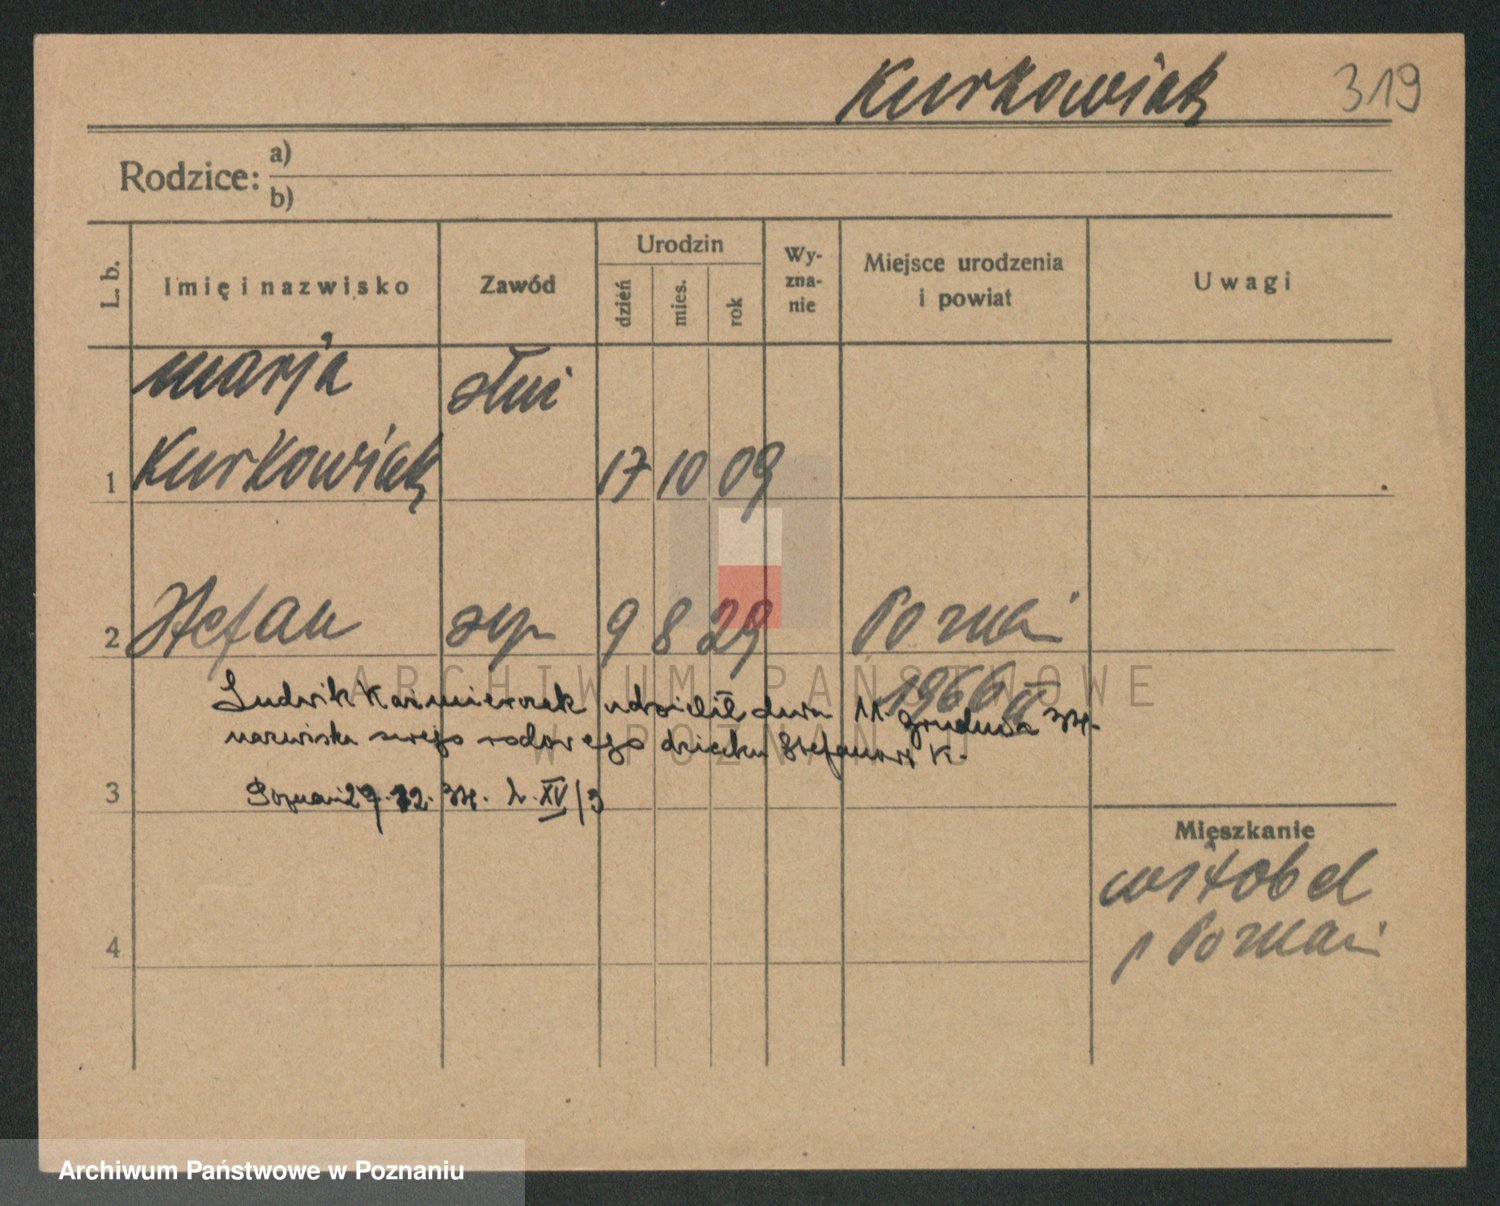 Kurkowiak 319
Rodzice: a)
b)
L. b. Imię i nazwisko Zawód Urodzin dzień mies. rok Wy-zna-nie Miejsce urodzenia i powiat Uwagi
Marja służ
1 Kurkowiak 17 10 09
2 Stefan syn 9 8 29 Poznań
1966
Ludwik Kaźmierczak udzielił dnia 11. grudnia 34.
nazwiska swego rodowego dziecku Stefanowi K.
3 Poznań 29.12.34. L. XV/3
Mieszkanie
Witobel
p Poznań
4
ARCHIWUM PAŃSTWOWE
W POZNANIU
Archiwum Państwowe w Poznaniu